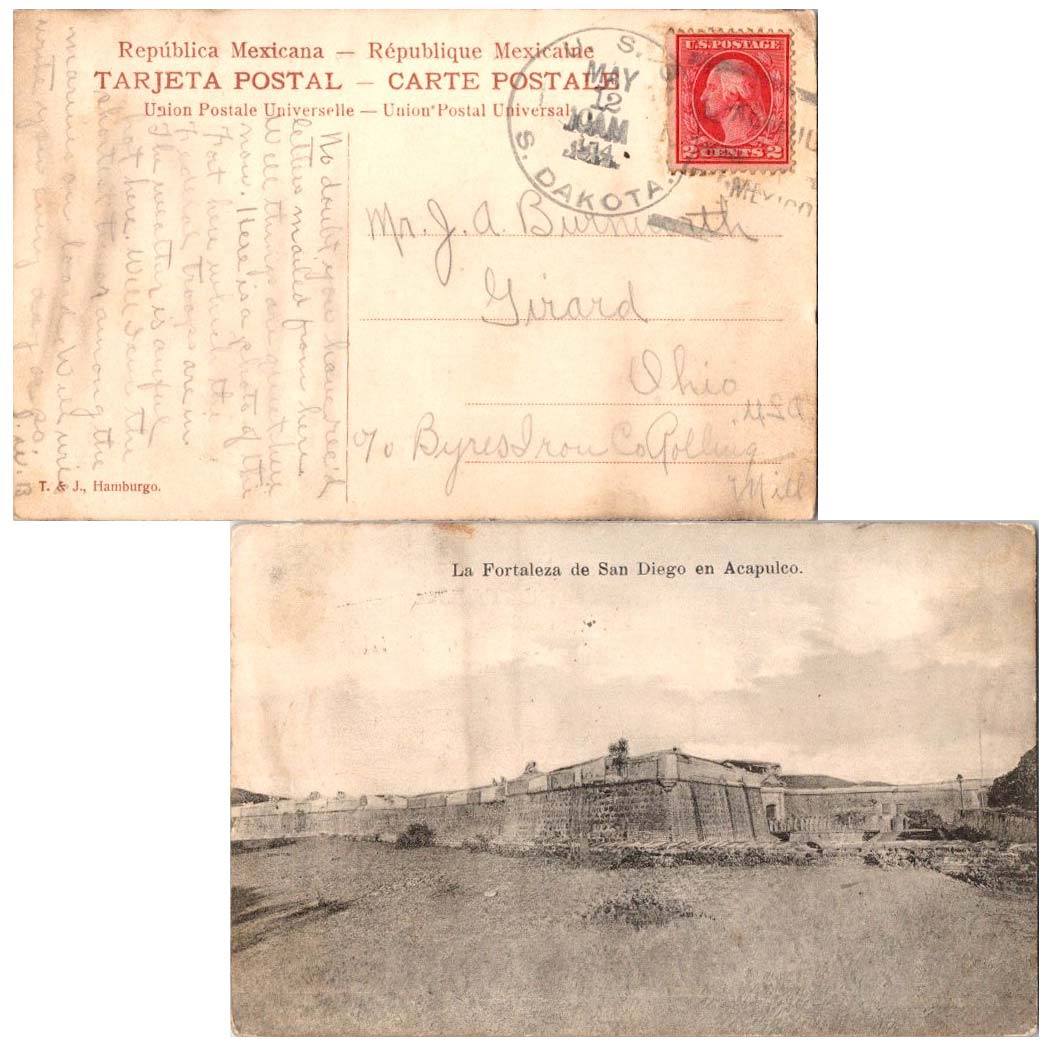 República Mexicana — République Mexicaine
TARJETA POSTAL — CARTE POSTALE
Union Postale Universelle — Union Postal Universal
U. S. S.
MAY
12
10AM
1914
S. DAKOTA.
U.S. POSTAGE
2 CENTS 2
MEXICO
Mr. J. A. Burnworth
Girard
Ohio
U.S.A
c/o Byres Iron Co Rolling
Mill
No doubt you have rec'd
letters mailed from here.
Well things are quiet here
now. Here is a photo of the
Fort here which the
Federal troops are in
The weather is awful
hot here. Will
among the
marines on board. Will
write every day or so.
T. & J., Hamburgo.
La Fortaleza de San Diego en Acapulco.